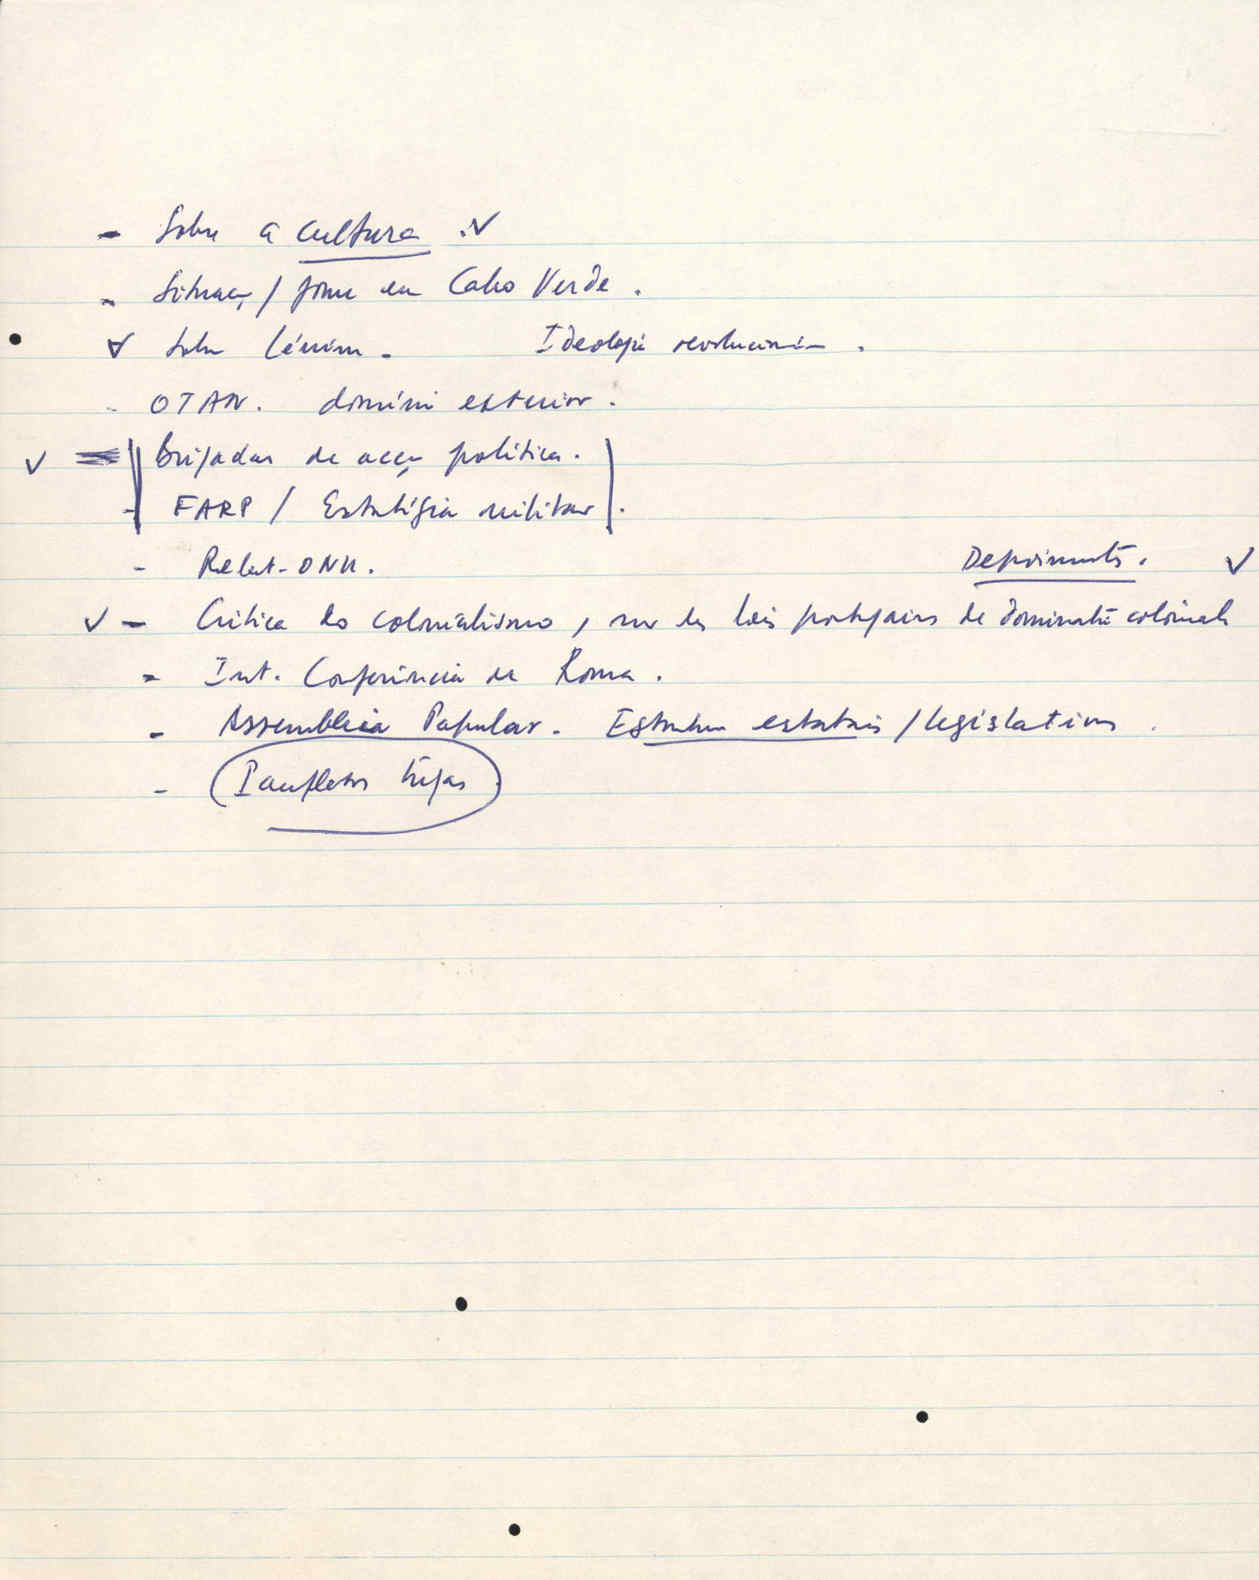 - Sobre a cultura.
- Situaç / fome em Cabo Verde.
Sobre Lénine - Ideologia revolucionária.
- OTAN. domínio exterior.
Brigadas de acção política.
- FARP / Estratégia militar.
- Relat. ONU. Depoimentos.
- Crítica do colonialismo, leis portuguesas de colonial
- Int. Conferência de Roma.
- Assembleia Popular. Estrutura estatais / legislativas.
- Panfletos tugas